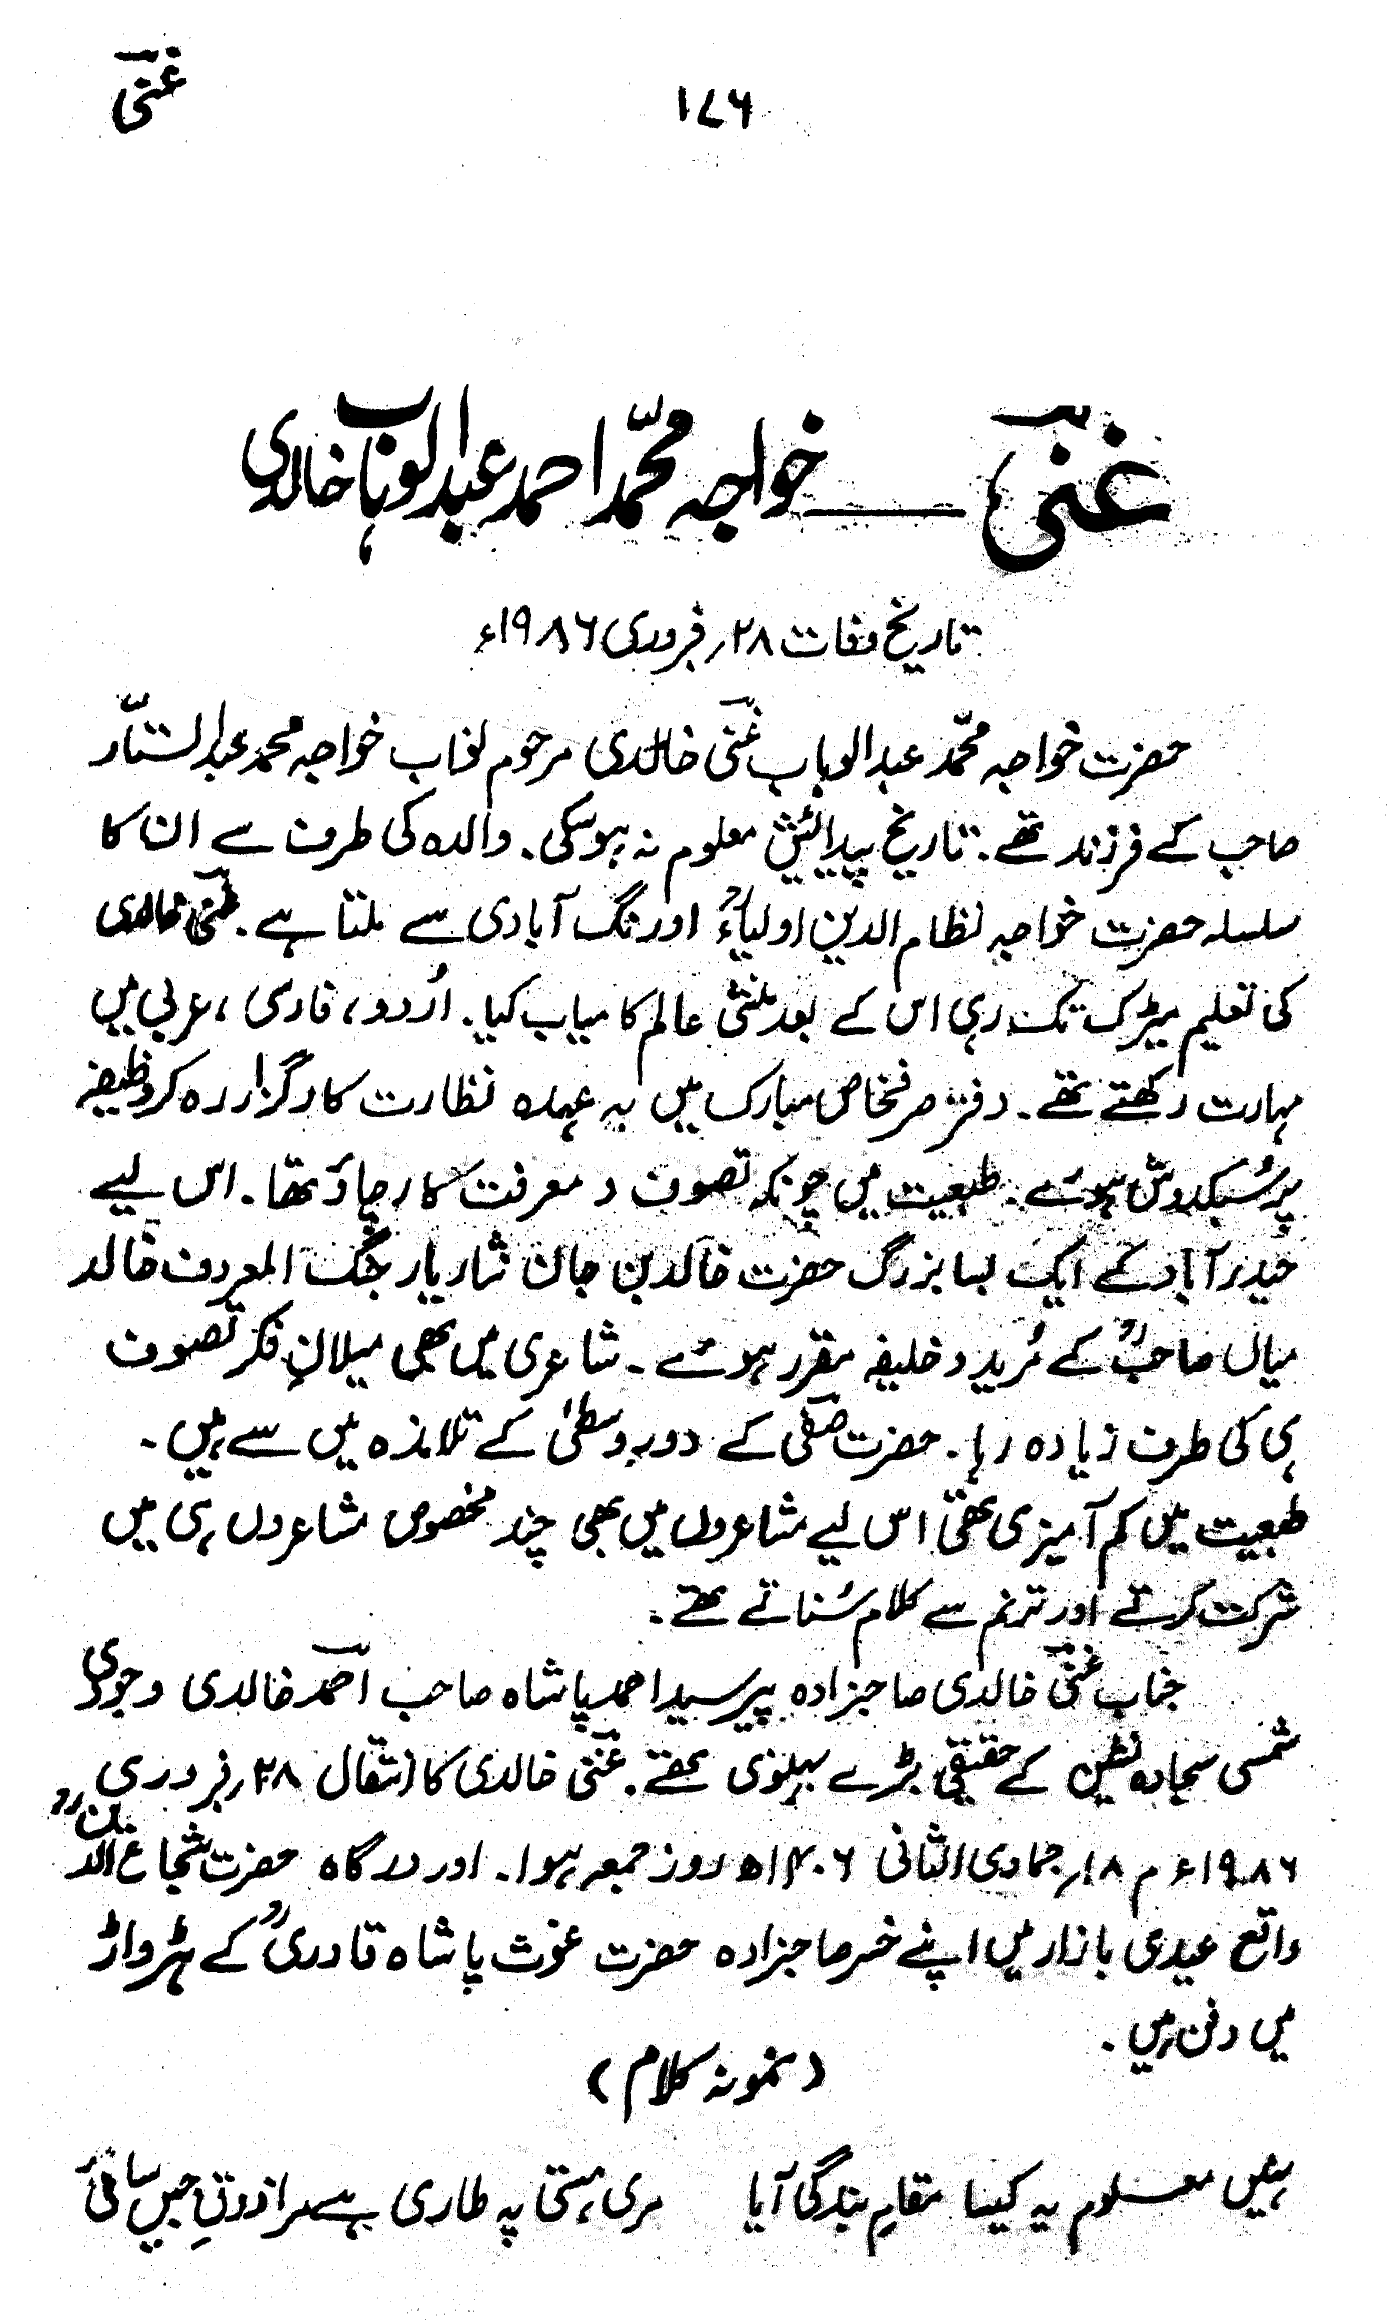 غنیؔ
۱۷۶
غنیؔ ــــ خواجہ محمّد احمد عبدالوہاب خالدی
تاریخ وفات ۲۸؍ فروری ۱۹۸۶ء
حضرت خواجہ محمّد عبدالوہاب غنیؔ خالدی مرحوم نواب خواجہ محمد عبدالستّار
صاحب کے فرزند تھے۔ تاریخ پیدائیش معلوم نہ ہوسکی۔ والدہ کی طرف سے ان کا
سلسلہ حضرت خواجہ نظام الدین اولیاءؒ اورنگ آبادی سے ملتا ہے۔ غنیؔ خالدی
کی تعلیم میٹرک تک رہی اس کے بعد منشی عالم کامیاب کیا۔ اُردو، فارسی، عربی میں
مہارت رکھتے تھے۔ دفتر صرفخاص مبارک میں بہ عہدہ نظارت کارگزار رہ کر وظیفہ
پر سُبکدوش ہوئے۔ طبعیت میں چونکہ تصوف و معرفت کا رچاؤ تھا۔ اس لیے
حیدرآباد کے ایک بسا بزرگ حضرت خالد بن جان نثار یار جنگ المعروف خالد
میاں صاحبؒ کے مُرید و خلیفہ مقرر ہوئے۔ شاعری میں بھی میلانِ فکر تصوف
ہی کی طرف زیادہ رہا۔ حضرت صفیؔ کے دورِ وسطیٰ کے تلامذہ میں سے ہیں۔
طبعیت میں کم آمیزی تھی اس لیے مشاعروں میں بھی چند مخصوص مشاعروں ہی میں
شرکت کرتے اور ترنم سے کلام سُناتے تھے۔
جناب غنیؔ خالدی صاحبزادہ پیر سید احمد پاشاہ صاحب احمدؔ خالدی وجودی
شمسی سجادہ نشین کے حقیقی بڑے بہنوئی تھے۔ غنیؔ خالدی کا انتقال ۲۸؍ فروری
۱۹۸۶ء م ۱۸؍ جمادی الثانی ۱۴۰۶ھ روز جمعہ ہوا۔ اور درگاہ حضرت شجاع الدینؒ
واقع عیدی بازار میں اپنے خسر صاحبزادہ حضرت غوث پاشاہ قادریؒ کے ہڑواڑ
میں دفن ہیں۔
(نمونہ کلام)
نہیں معلوم یہ کیسا مقامِ بندگی آیا مری ہستی پہ طاری ہے مرا ذوقِ جبیں سائی